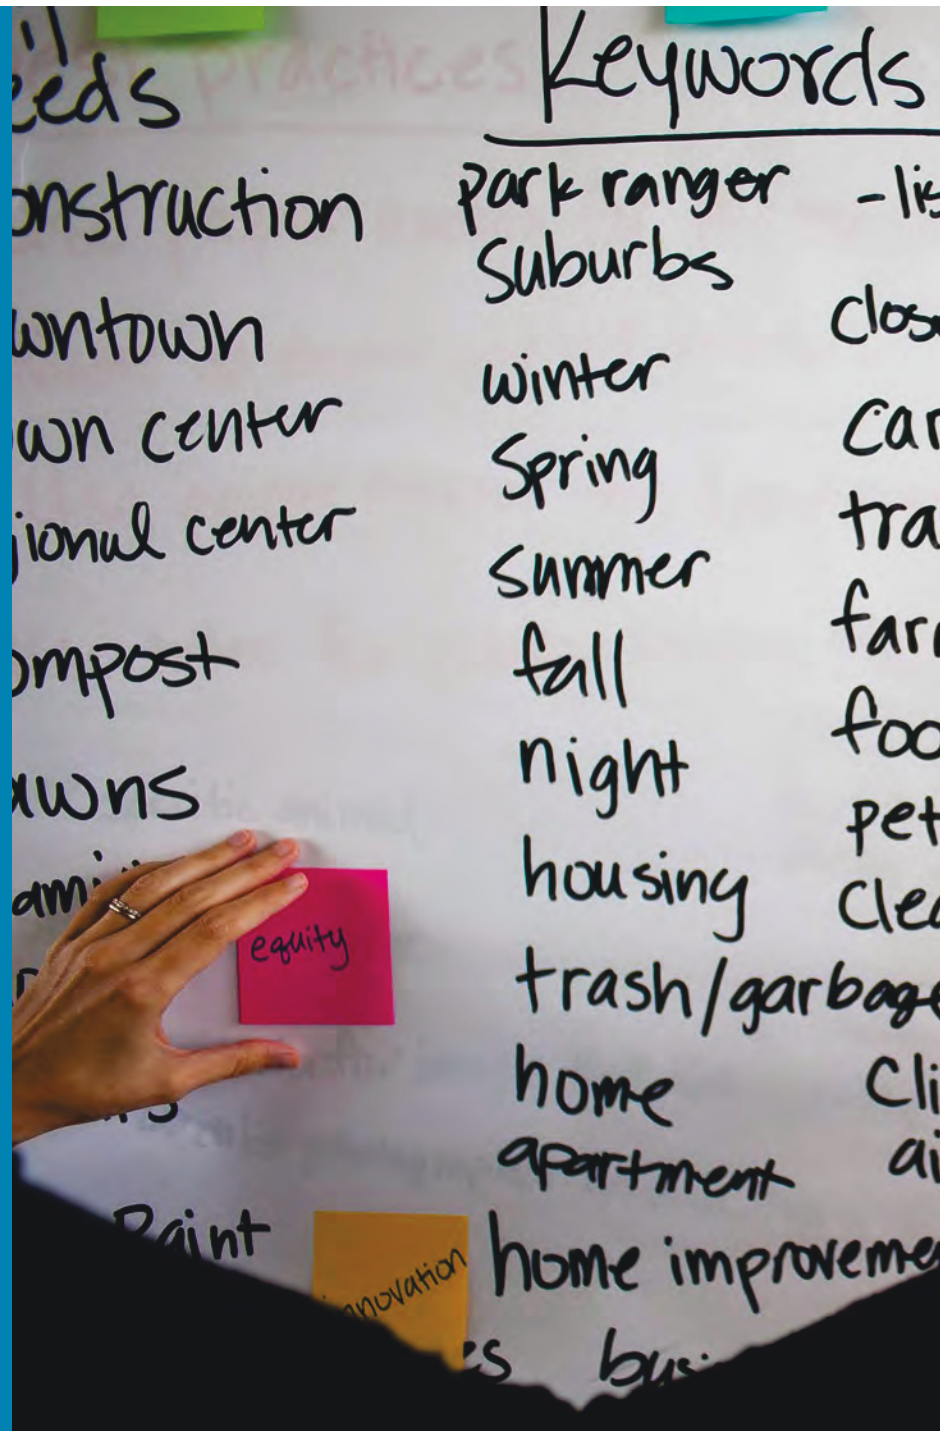 eeds
onstruction
wntown
own center
gional center
ompost
awns
ami
equity
Paint
innovation
es
Keywords
park ranger
suburbs
winter
Spring
summer
fall
night
housing
trash/garbage
home
apartment
home improveme
busi
-lis
close
car
tra
farm
foo
pet
clea
Cli
ai
practices